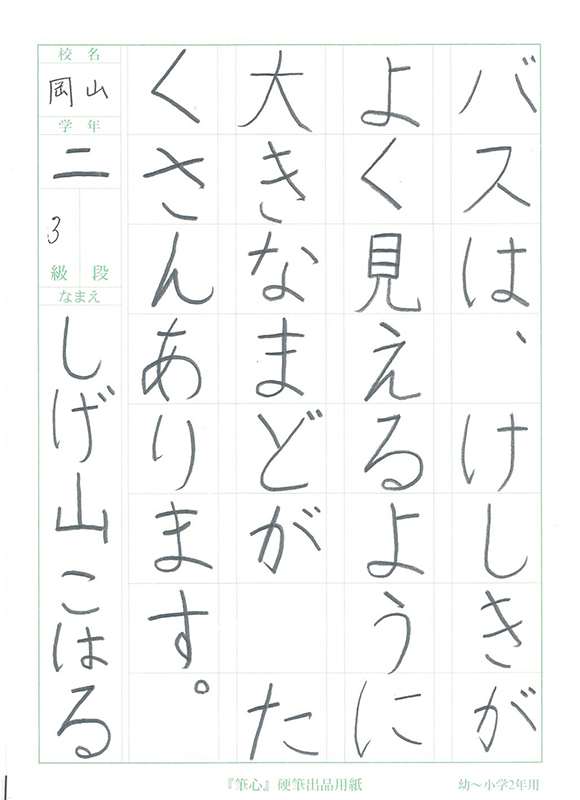 バスは、けしきが
よく見えるように
大きなまどが　た
くさんあります。
校名
岡山
学年
二
3
級 段
なまえ
しげ山こはる
『筆心』硬筆出品用紙
幼～小学2年用